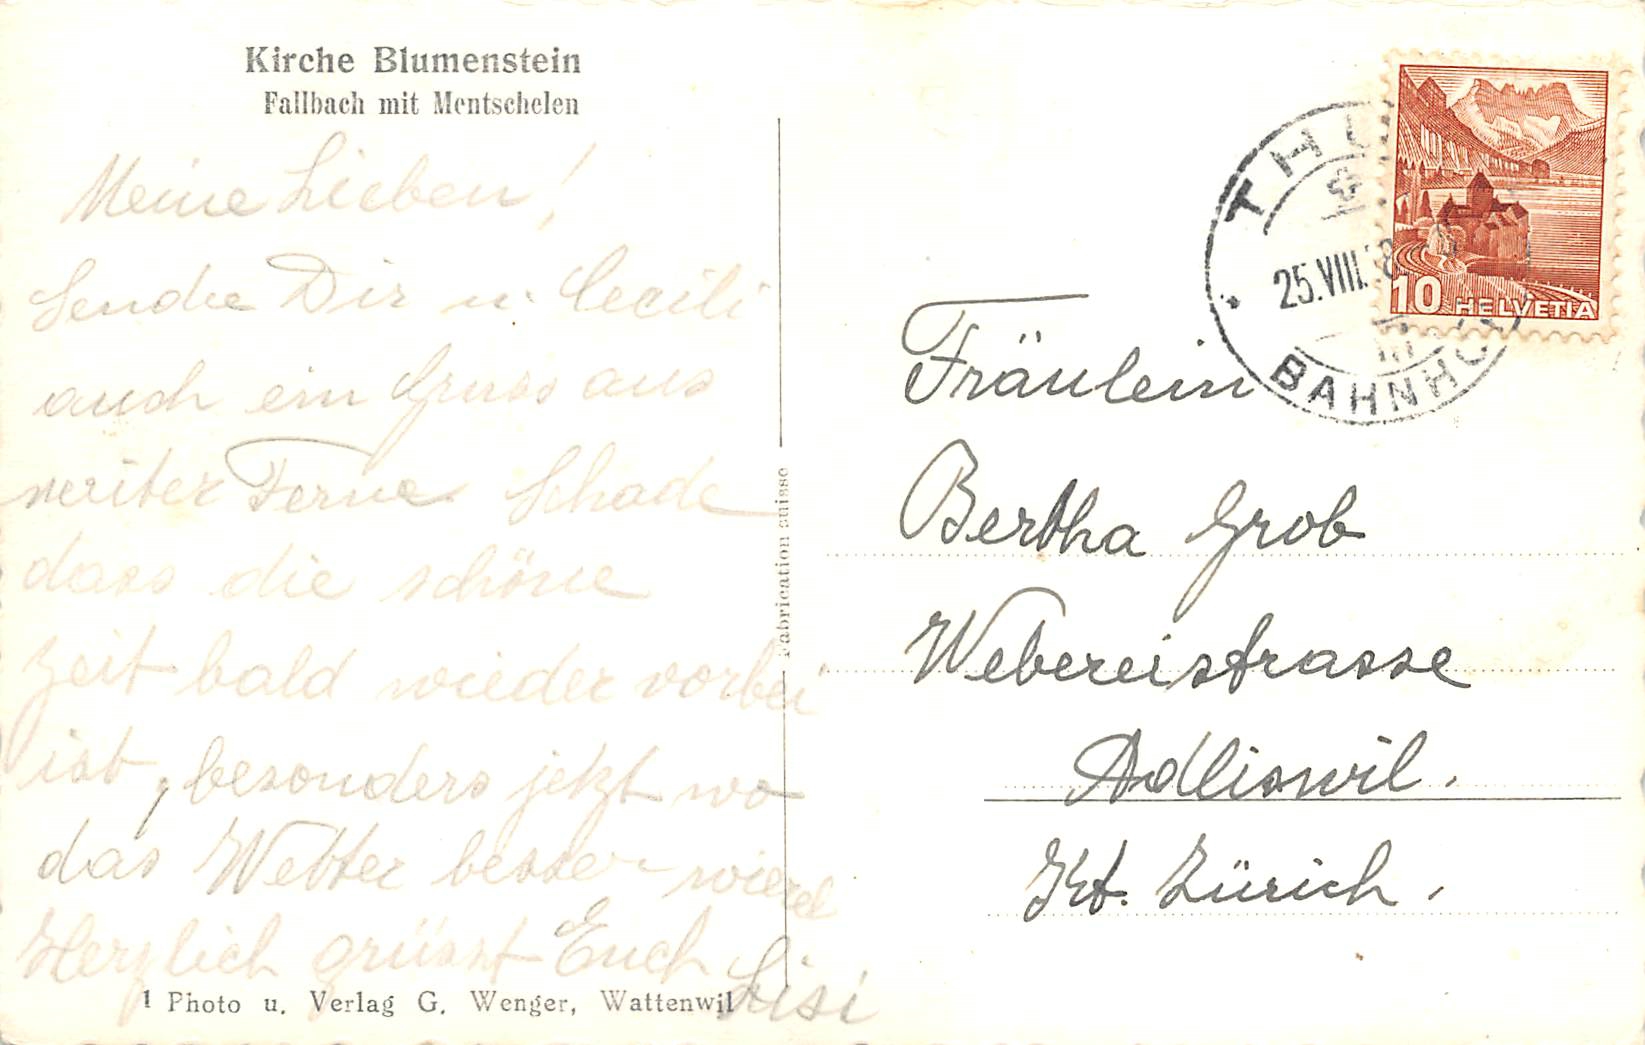 Kirche Blumenstein
Fallbach mit Mentschelen
Meine Lieben!
Sende Dir u. Cecili
auch ein Gruss aus
weiter Ferne. Schade
dass die schöne
Zeit bald wieder vorbei
ist, besonders jetzt wo
das Wetter besser wird
Herzlich grüsst Euch Lisi
1 Photo u. Verlag G. Wenger, Wattenwil
Fabrication suisse
THUN
25.VIII.
BAHNHOF
10 HELVETIA
Fräulein
Bertha Grob
Webereistrasse
Adliswil.
Kt. Zürich.